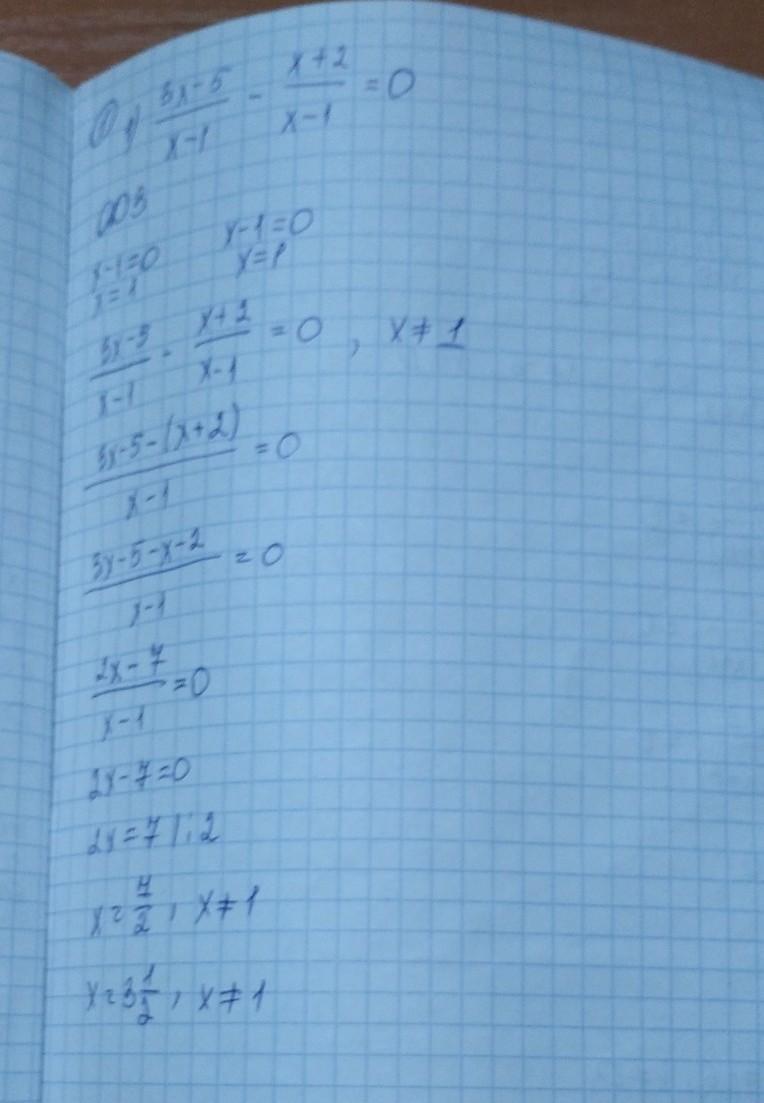 ① 1) (3x-5)/(x-1) - (x+2)/(x-1) = 0
ОДЗ
x-1=0 x-1=0
x=1 x=1
(3x-5)/(x-1) - (x+2)/(x-1) = 0, x≠1
(3x-5-(x+2))/(x-1) = 0
(3x-5-x-2)/(x-1) = 0
(2x-7)/(x-1) = 0
2x-7=0
2x=7 |:2
x=7/2, x≠1
x=3 1/2, x≠1